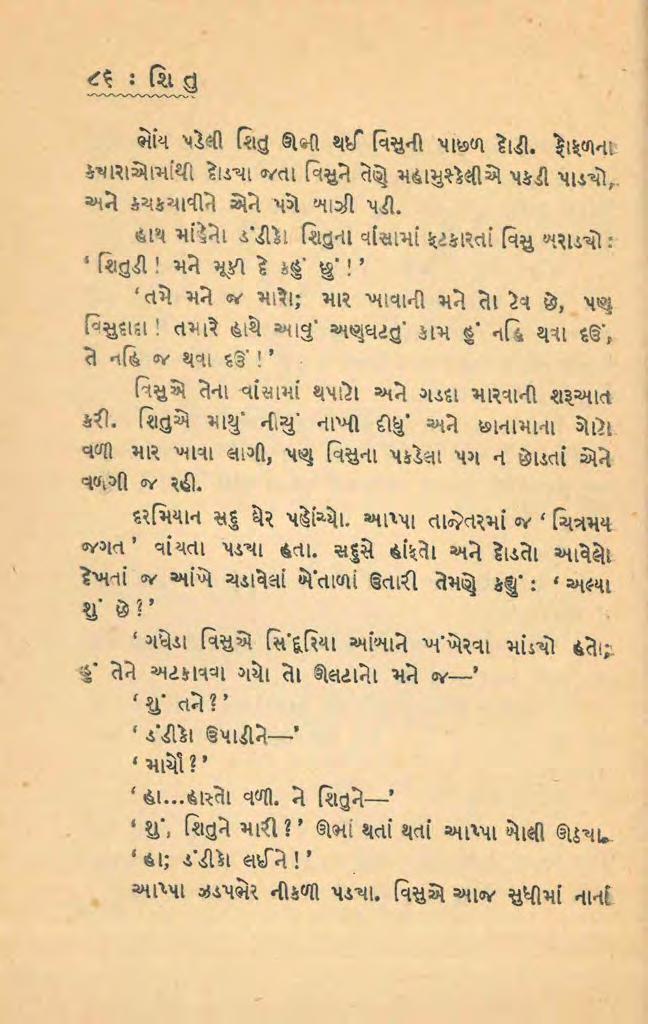 ૮૬ : શિ તુ
ભોંય પડેલી શિતુ ઊભી થઈ વિસુની પાછળ દોડી. ફોફળના
ક્યારાઓમાંથી દોડ્યા જતા વિસુને તેણે મહામુશ્કેલીએ પકડી પાડ્યો,
અને કચકચાવીને એને પગે બાઝી પડી.
હાથ માંહેનો ડંડીકો શિતુના વાંસામાં ફટકારતાં વિસુ બરાડ્યો :
‘ શિતુડી ! મને મૂકી દે કહું છું ! ’
‘તમે મને જ મારો; માર ખાવાની મને તો ટેવ છે, પણ
વિસુદાદા ! તમારે હાથે આવું અણઘટતું કામ હું નહિ થવા દઉં,
તે નહિ જ થવા દઉં ! ’
વિસુએ તેના વાંસામાં થપાટો અને ગડદા મારવાની શરૂઆત
કરી. શિતુએ માથું નીચું નાખી દીધું અને છાનામાના ગોટો
વળી માર ખાવા લાગી, પણ વિસુના પકડેલા પગ ન છોડતાં એને
વળગી જ રહી.
દરમિયાન સદુ ઘેર પહોંચ્યો. આપ્પા તાજેતરમાં જ ‘ ચિત્રમય
જગત ’ વાંચતા પડ્યા હતા. સદુસે હાંફતો અને દોડતો આવેલો
દેખતાં જ આંખે ચડાવેલાં બેતાળાં ઉતારી તેમણે કહ્યું : ‘ અલ્યા
શું છે ? ’
‘ ગધેડા વિસુએ સિંદૂરિયા આંબાને ખંખેરવા માંડ્યો હતો;
હું તેને અટકાવવા ગયો તો ઊલટાનો મને જ—’
‘ શું તને ? ’
‘ ડંડીકો ઉપાડીને—’
‘ માર્યો ? ’
‘ હા...હાસ્તો વળી. ને શિતુને—’
‘ શું, શિતુને મારી ? ’ ઊભાં થતાં થતાં આપ્પા બોલી ઊઠ્યા.
‘ હા; ડંડીકો લઈને ! ’
આપ્પા ઝડપભેર નીકળી પડ્યા. વિસુએ આજ સુધીમાં નાનાં